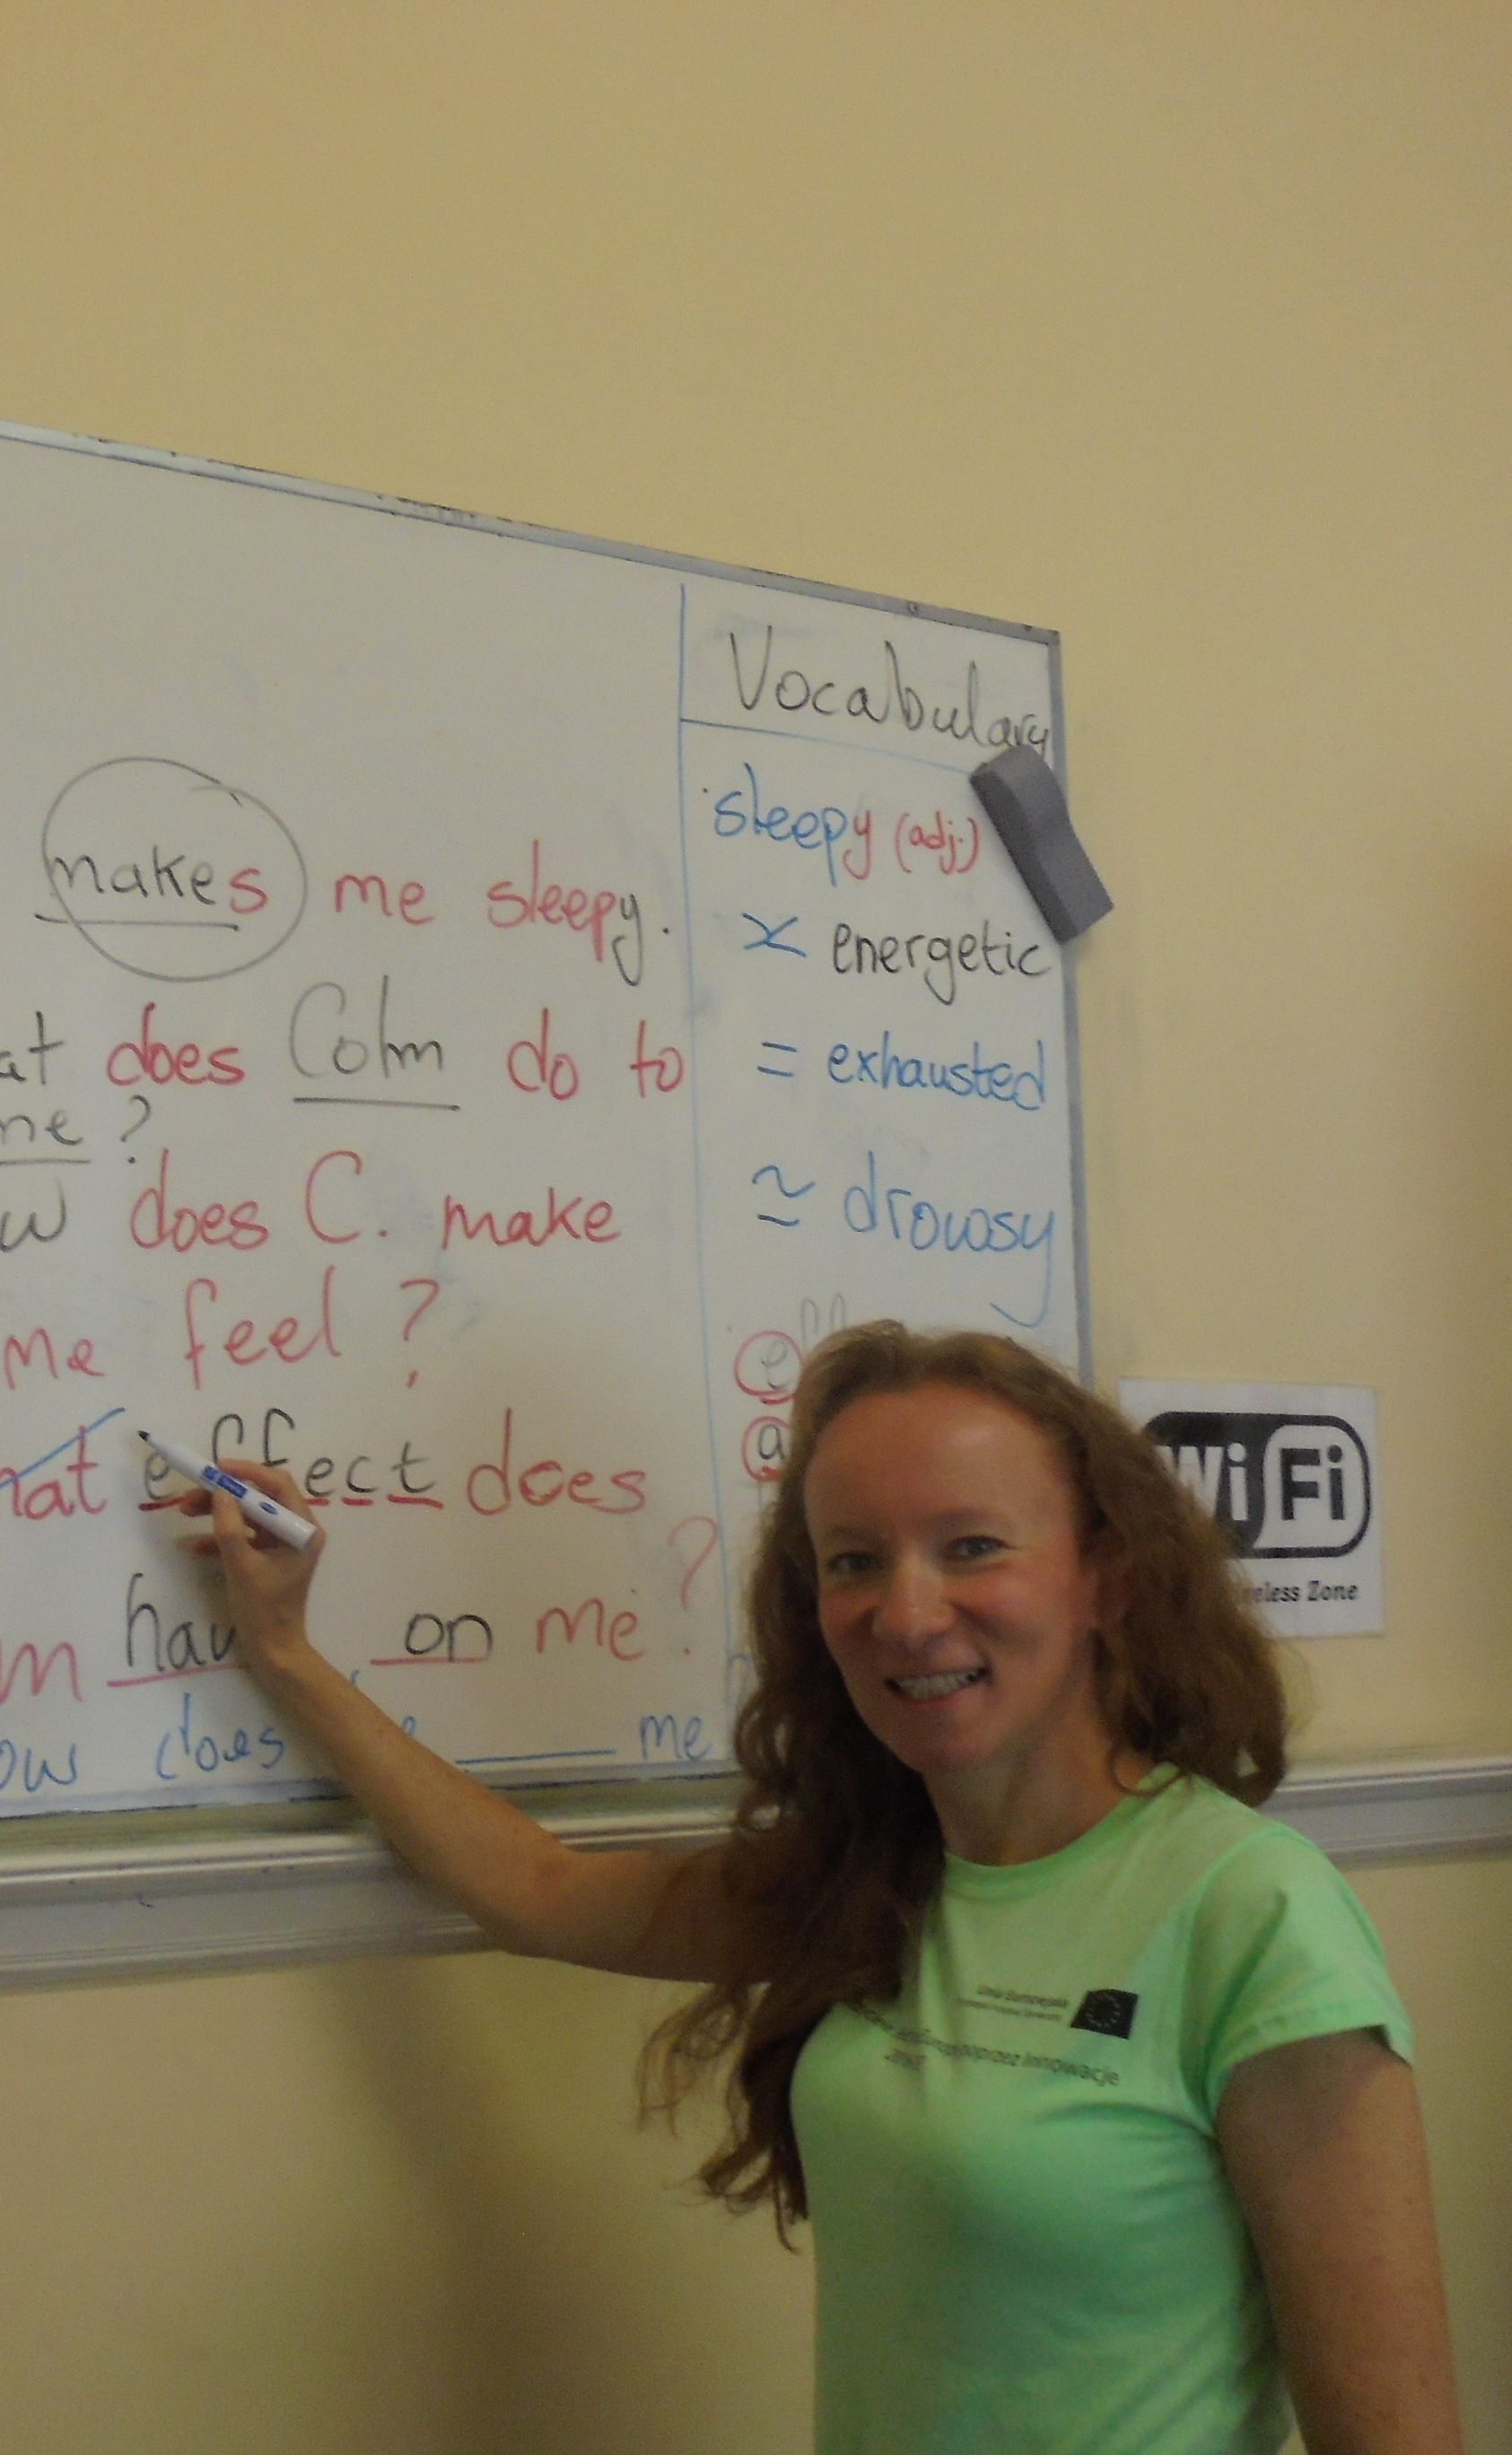 makes me sleepy.
at does Colm do to
me?
w does C. make
me feel?
hat effect does
m have on me?
ow does me
Vocabulary
sleepy (adj.)
x energetic
= exhausted
≃ drowsy
e
a
WiFi
Zone
Unia Europejska
poprzez innowacje